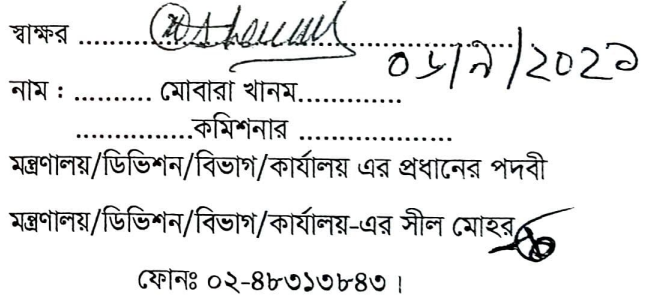 স্বাক্ষর ..............................................
নাম : .......... মোবারা খানম..............
..............কমিশনার ....................
মন্ত্রণালয়/ডিভিশন/বিভাগ/কার্যালয় এর প্রধানের পদবী
মন্ত্রণালয়/ডিভিশন/বিভাগ/কার্যালয়-এর সীল মোহর
ফোনঃ ০২-৪৮৩১৩৮৪৩ ।